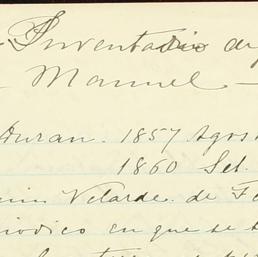 Inventario de
Manuel
Duran. 1857 Agos
1860 Set.
Velarde. de
riodico en que se